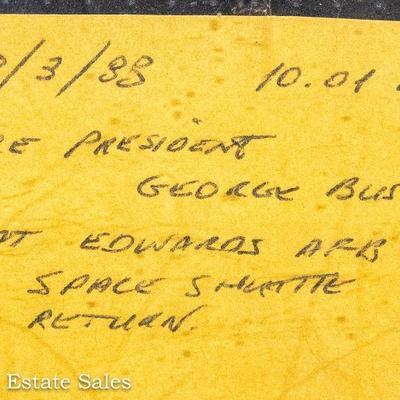 /3/88 10.01
PRESIDENT
GEORGE BUS
EDWARDS AFB
SPACE SHUTTLE
RETURN.
Estate Sales